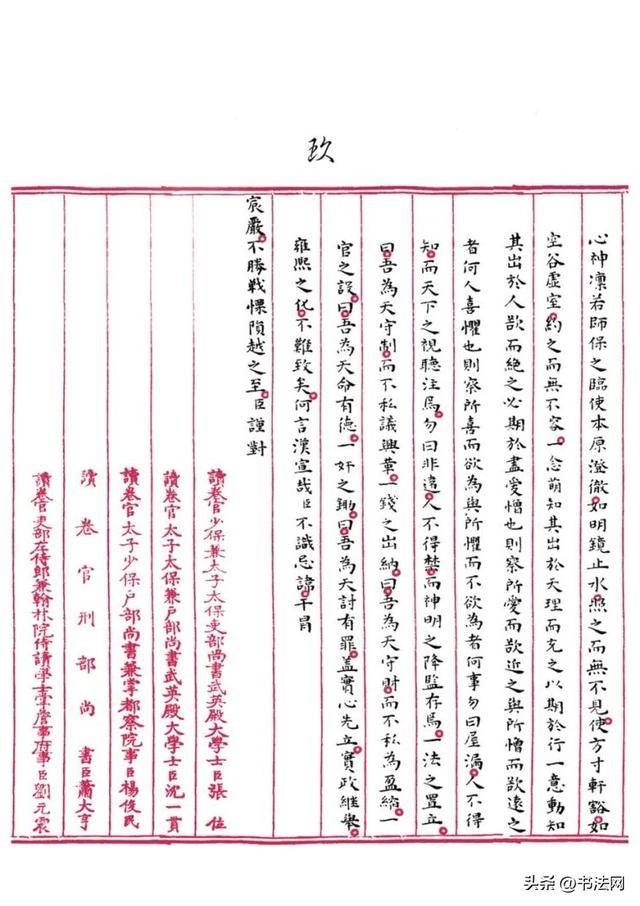 玖
心神凜若師保之臨使本原澄徹如明鏡止水照之而無不見使方寸軒豁如
空谷虛室約之而無不容一念萌知其出於天理而充之以期於行一意動知
其出於人欲而絕之必期於盡愛憎也則察所愛而欲近之與所憎而欲遠之
者何人喜懼也則察所喜而欲為與所懼而不欲為者何事勿曰屋漏人不得
知而天下之視聽注焉勿曰非違人不得禁而神明之降監存焉一法之置立
曰吾為天守制而不私議興革一錢之出納曰吾為天守財而不私為盈縮一
官之設曰吾為天命有德一奸之鋤曰吾為天討有罪蓋實心先立實政繼舉
雍熙之化不難致矣何言漢宣哉臣不識忌諱干冒
宸嚴不勝戰慄隕越之至臣謹對
讀卷官少保兼太子太保吏部尚書武英殿大學士臣張位
讀卷官太子太保兼戶部尚書武英殿大學士臣沈一貫
讀卷官太子少保戶部尚書兼掌都察院事臣楊俊民
讀卷官刑部尚書臣蕭大亨
讀卷官吏部左侍郎兼翰林院侍讀學士掌詹事府事臣劉元震
头条 @书法网